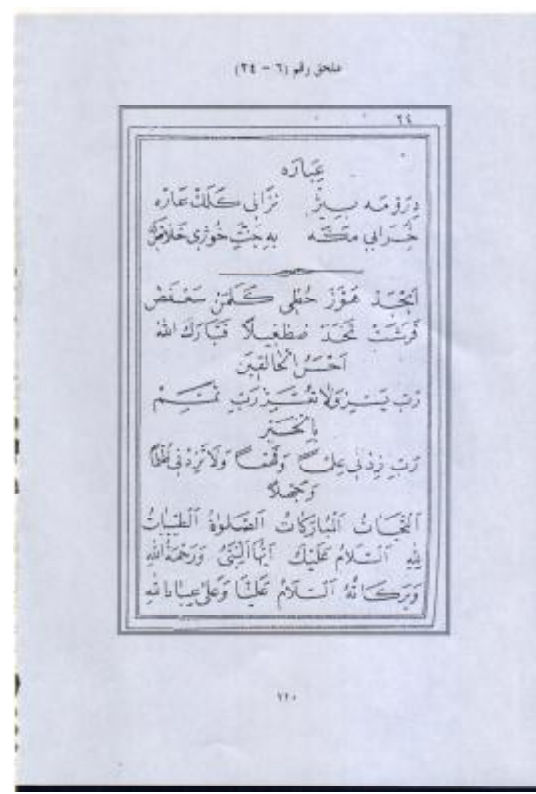 ملحق رقم (٦ - ٢٤)
٢٤
عِبَارَه
دِرَوْ مَه بِيژ نزانى كَلَكْ عَارَه
خُرَابى مَكَه بِه جنت خُوڗى خَلَاصَه
اَبْجَدْ هَوَّزْ حُطِّى كَلَمَنْ سَعْفَصْ
قَرَشَتْ ثَخَذْ ضَظَغِيلًا فَتَبَارَكَ اللهُ
اَحْسَنُ الْخَالِقِينَ
رَبِّ يَسِّرْ وَلَا تُعَسِّرْ رَبِّ تَمِّمْ
بِالْخَيْرِ
رَبِّ زِدْنِى عِلْمًا وَفَهْمًا وَلَا تَزِدْنِى
وَجَهْلًا
اَلتَّحِيَّاتُ اَلْمُبَارَكَاتُ اَلصَّلَوٰةُ اَلطَّيِّبَاتُ
لِلّٰهِ اَلسَّلَامُ عَلَيْكَ اَيُّهَا النَّبِىُّ وَرَحْمَةُ اللهِ
وَبَرَكَاتُهُ اَلسَّلَامُ عَلَيْنَا وَعَلٰى عِبَادِ اللهِ
٢٢٠